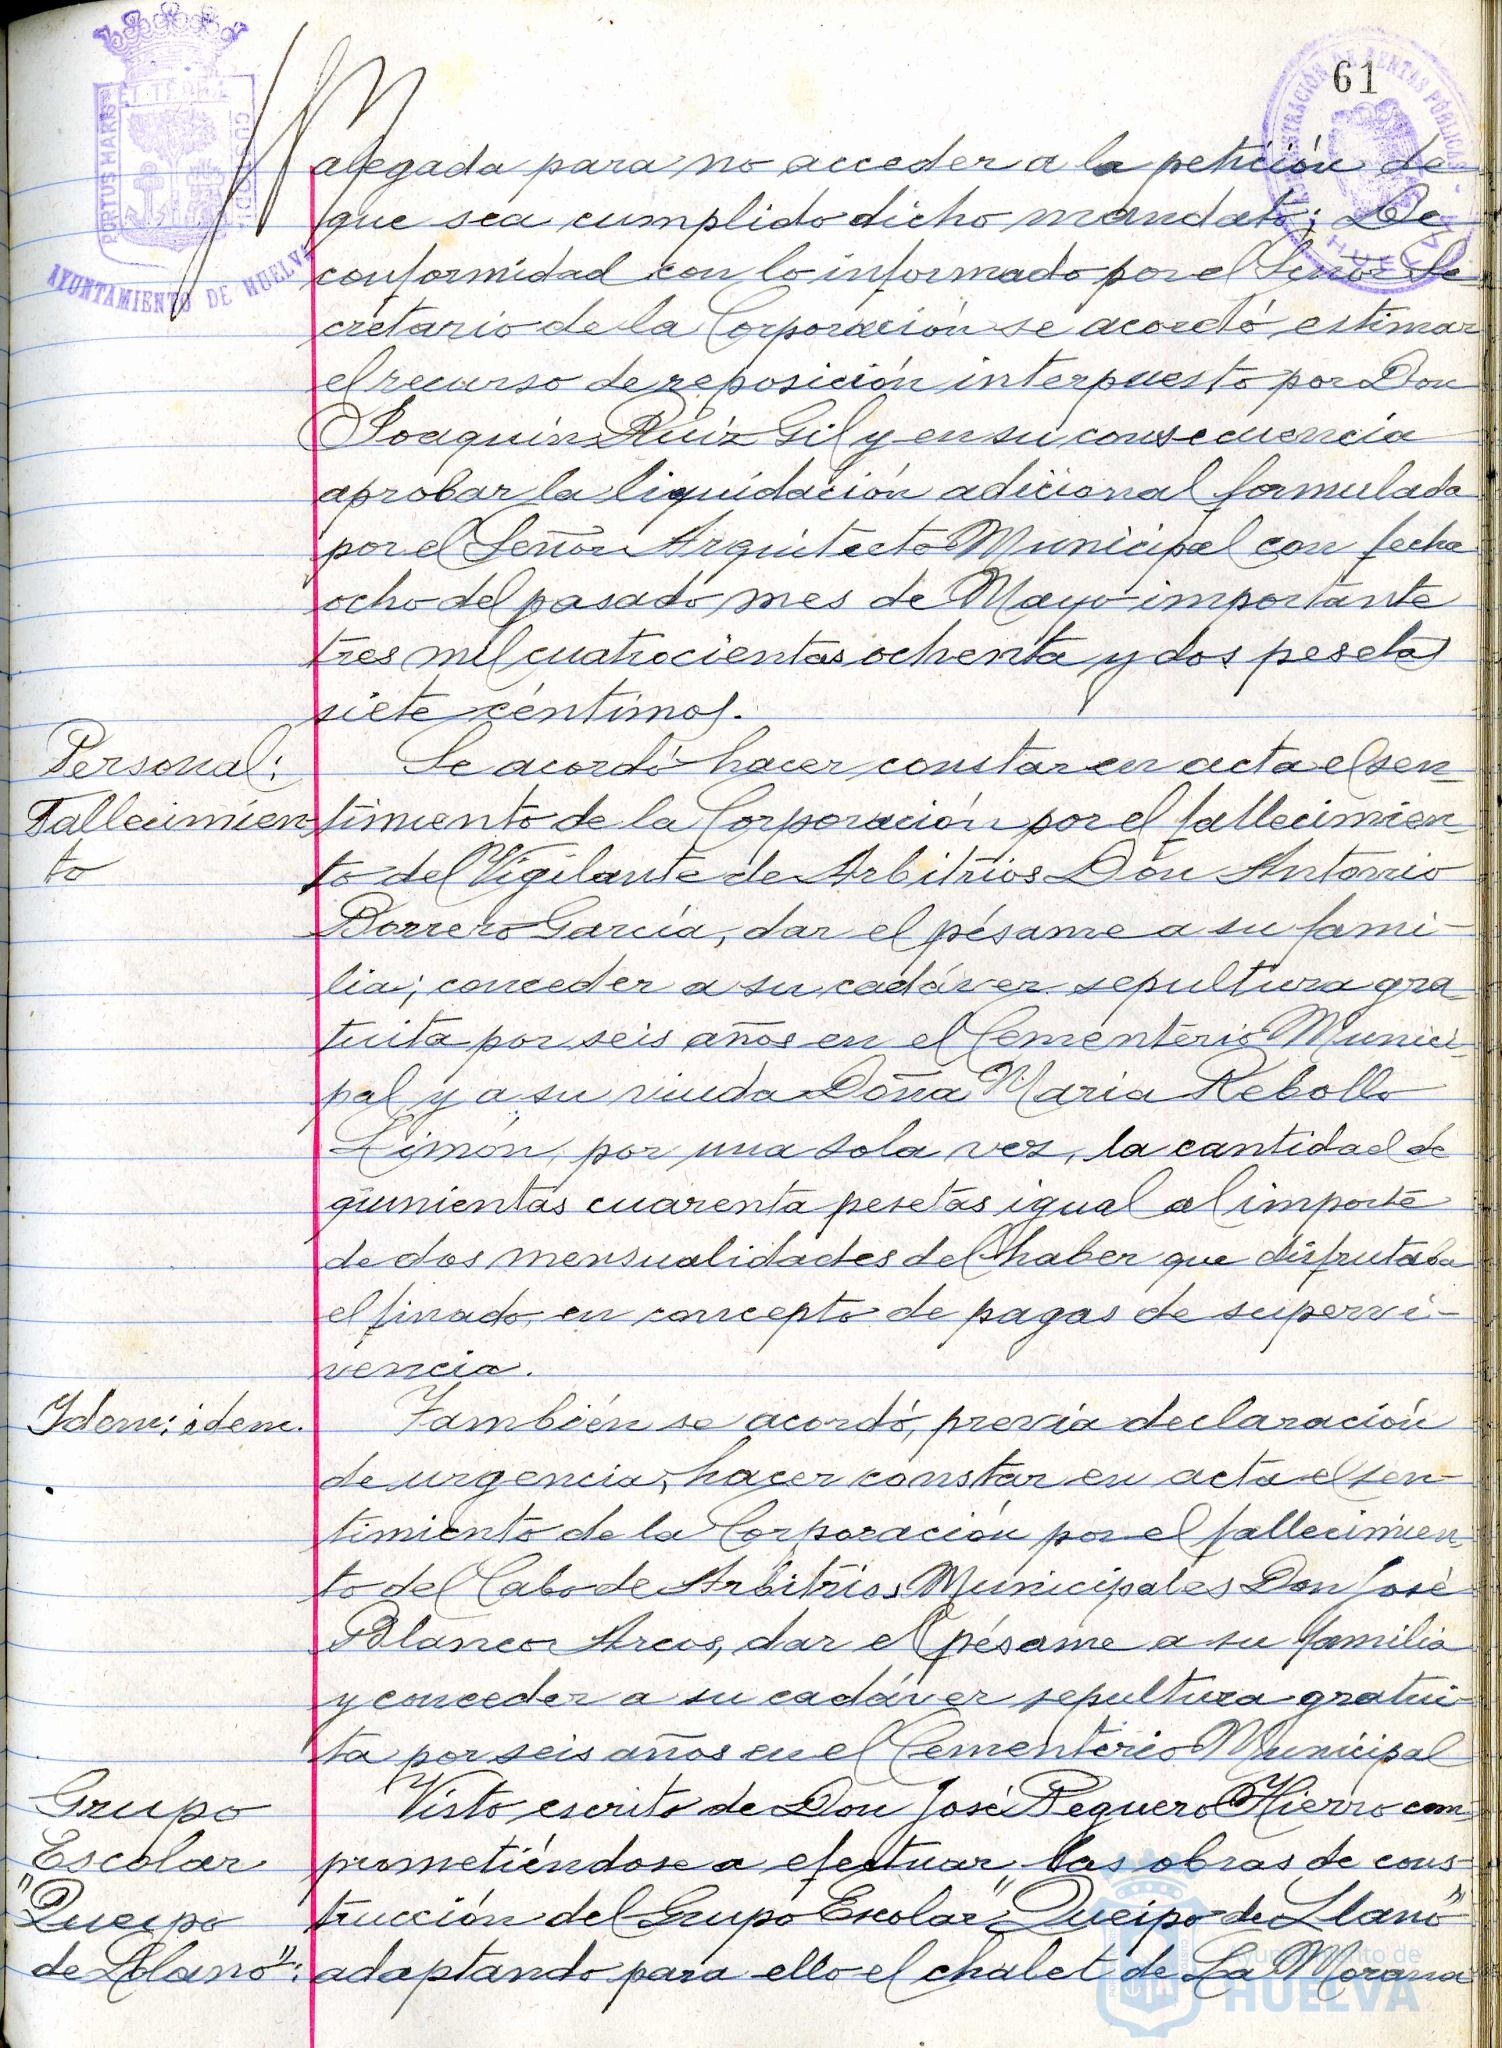 61
PORTUS MARIS ET TERRAE CUSTODIA
AYUNTAMIENTO DE HUELVA
ADMINISTRACIÓN DE RENTAS PÚBLICAS
HUELVA
alegada para no acceder a la petición de
que sea cumplido dicho mandato; De
conformidad con lo informado por el Señor Se
cretario de la Corporación se acordó estimar
el recurso de reposición interpuesto por Don
Joaquín Ruiz Gil y en su consecuencia
aprobar la liquidación adicional formulada
por el Señor Arquitecto Municipal con fecha
ocho del pasado mes de Mayo importante
tres mil cuatrocientas ochenta y dos pesetas
siete céntimos.
Personal:
Fallecimien
to
Se acordó hacer constar en acta el sen-
timiento de la Corporación por el fallecimien-
to del Vigilante de Arbitrios Don Antonio
Borrero García, dar el pésame a su fami-
lia; conceder a su cadáver sepultura gra-
tuita por seis años en el Cementerio Munici-
pal y a su viuda Doña María Rebollo
Limón, por una sola vez, la cantidad de
quinientas cuarenta pesetas igual al importe
de dos mensualidades del haber que disfrutaba
el finado, en concepto de pagas de supervi-
vencia.
Idem; idem.
También se acordó, previa declaración
de urgencia, hacer constar en acta el sen-
timiento de la Corporación por el fallecimien-
to del Cabo de Arbitrios Municipales Don José
Blanco Arcos, dar el pésame a su familia
y conceder a su cadáver sepultura gratui-
ta por seis años en el Cementerio Municipal
Grupo
Escolar
"Queipo
de Llano":
Visto escrito de Don José Peguero Hierro com-
prometiéndose a efectuar las obras de cons-
trucción del Grupo Escolar "Queipo de Llano"
adaptando para ello el chalet de La Morana
Ayuntamiento de
HUELVA